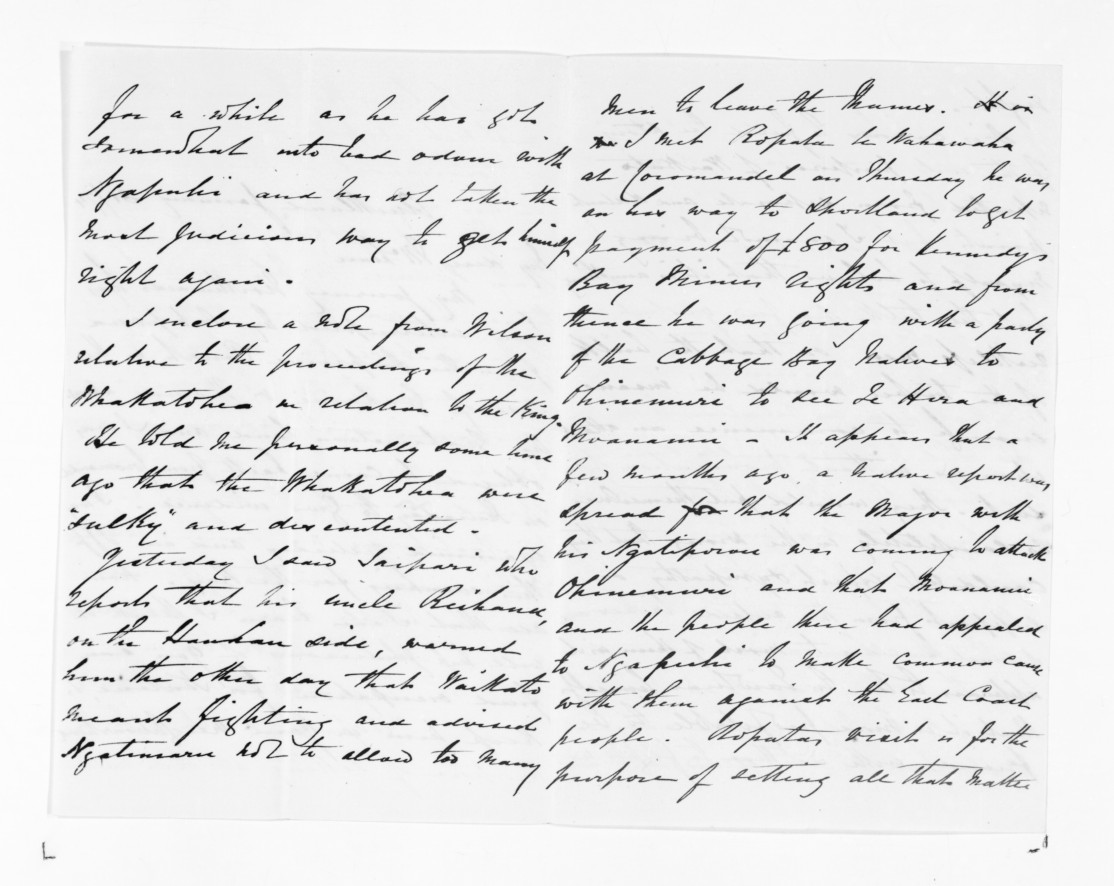 for a while as he has got
somewhat into bad odour with
Ngapuhi and has not taken the
most judicious way to get himself
right again.
I enclose a note from Wilson
relative to the proceedings of the
Whakatohea in relation to the King.
He told me personally some time
ago that the Whakatohea were
"sulky" and discontented.
Yesterday I saw Taipari who
reports that his uncle Reihana,
on the Hauhau side, warned
him the other day that Waikato
meant fighting and advised
Ngatimaru not to allow too many
men to leave the Thames. His
I met Ropata te Wahawaha
at Coromandel on Thursday he was
on his way to Shortland to get
payment of £800 for Kennedy's
Bay Miners rights and from
thence he was going with a party
of the Cabbage Bay Natives to
Ohinemuri to see Te Hira and
Moananui - It appears that a
few months ago a native report was
spread for that the Major with
his Ngatiporou was coming to attack
Ohinemuri and that Moananui
and the people there had appealed
to Ngapuhi to make common cause
with them against the East Coast
people. Ropatas visit is for the
purpose of setting all that matter